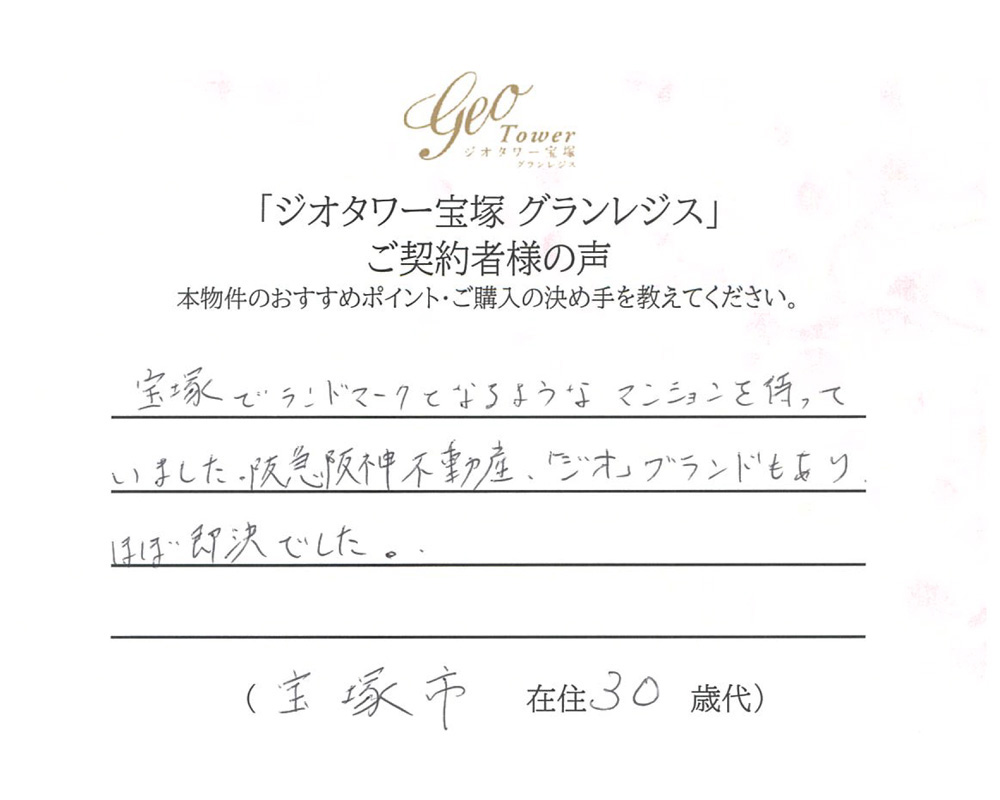 Geo
Tower
ジオタワー宝塚
グランレジス
「ジオタワー宝塚 グランレジス」
ご契約者様の声
本物件のおすすめポイント・ご購入の決め手を教えてください。
宝塚でランドマークとなるようなマンションを待って
いました。阪急阪神不動産、「ジオ」ブランドもあり
ほぼ即決でした。
(宝塚市 在住30歳代)